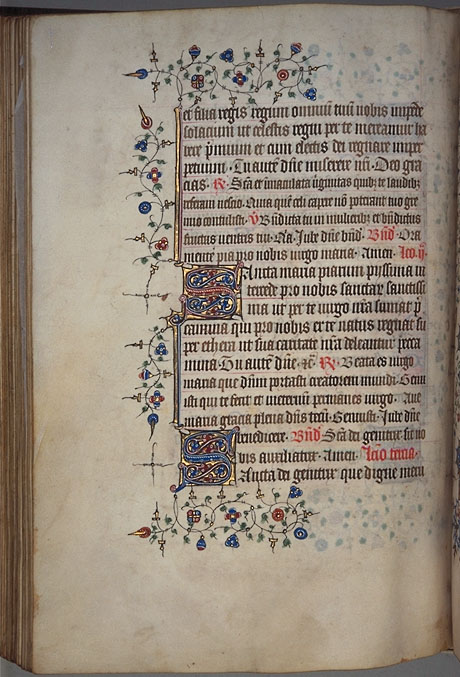 et sacra regis regum omnium tuum nobis impēde
solacium ut celestis regni per te mereamur ha
bere p̄mium et cum electis dei regnare imper
petuum. Tu autē dn̄e miserere nr̄i. Deo gra
cias. R̄. Sc̄a et immaculata v̓ginitas quibꝫ te laudibꝫ
referam nescio. Quia quē celi capere nō poterant tuo gre
mio contulisti. V̄ Bn̄dicta tu in mulieribꝫ et bn̄dictus
fructus uentris tui. Qa. Iube dn̄e bn̄d. Bn̄d. Ora
mente pia pro nobis uirgo maria. Amen. Lc̄o ij.
Sancta maria piarum piissima in
tercede pro nobis sanctarꝫ sanctissi
ma ut per te uirgo nr̄a sumat p̄
camina qui pro nobis ex te natus regnat su
per ethera ut sua caritate nr̄a deleantur pecca
mina. Tu autē dn̄e. ⁊c̄. R̄. Beata es uirgo
maria que dn̄m portasti creatorem mundi. Genu
isti qui te fecit et in eternum permanes uirgo. Aue
maria gracia plena dn̄s tecū. Genuisti. Iube dn̄e
benedicere. Bn̄d. Sc̄a dei genitrix sit no
bis auxiliatrix. Amen. Lc̄io tercia.
Sancta dei genitrix que digne meru